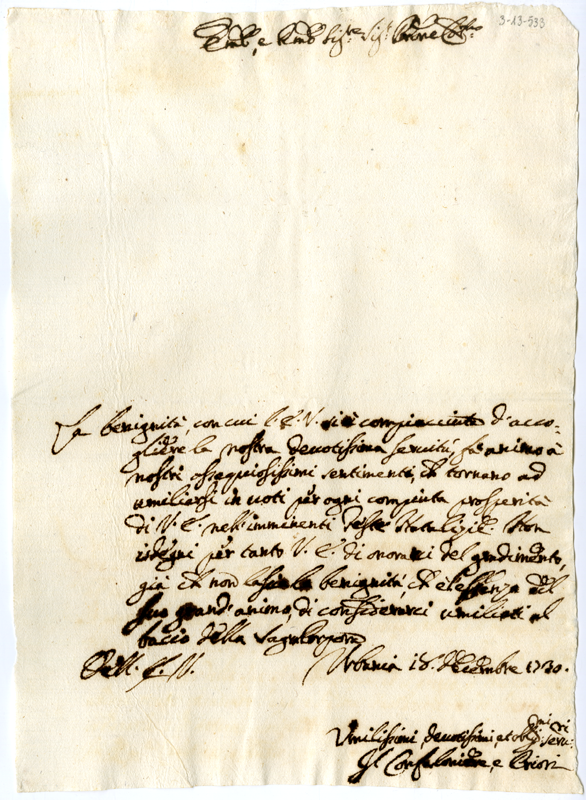 3-13-533
Em.o, e Rm.o Sig.re Sig.r Prone Col.mo
La benignità, con cui l'E. V. si è compiaciuta d'acco-
gliere la nostra devotissima servitù, fa animo a
nostri ossequiosissimi sentimenti, ch tornano ad
umiliarsi in voti per ogni compiuta prosperità
di V. E. nell'imminenti Feste Natalizie. Non
isdegni per tanto V. E. di onorarci del gradimento,
già ch non lascia la benignità, ch è essenza del
suo grand'animo, di considerarci umiliati al
bacio della Sagra Porpora
Dell' E. V.
Urbania 18. Decembre 1730.
Umilissimi, devotissimi, et obl.mi Serv.ri
Il Confaloniere, e Priori